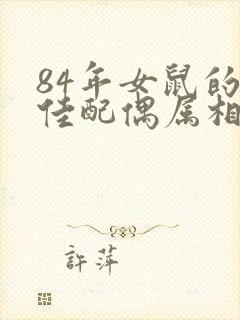 84年女鼠的
佳配偶属相
許萍